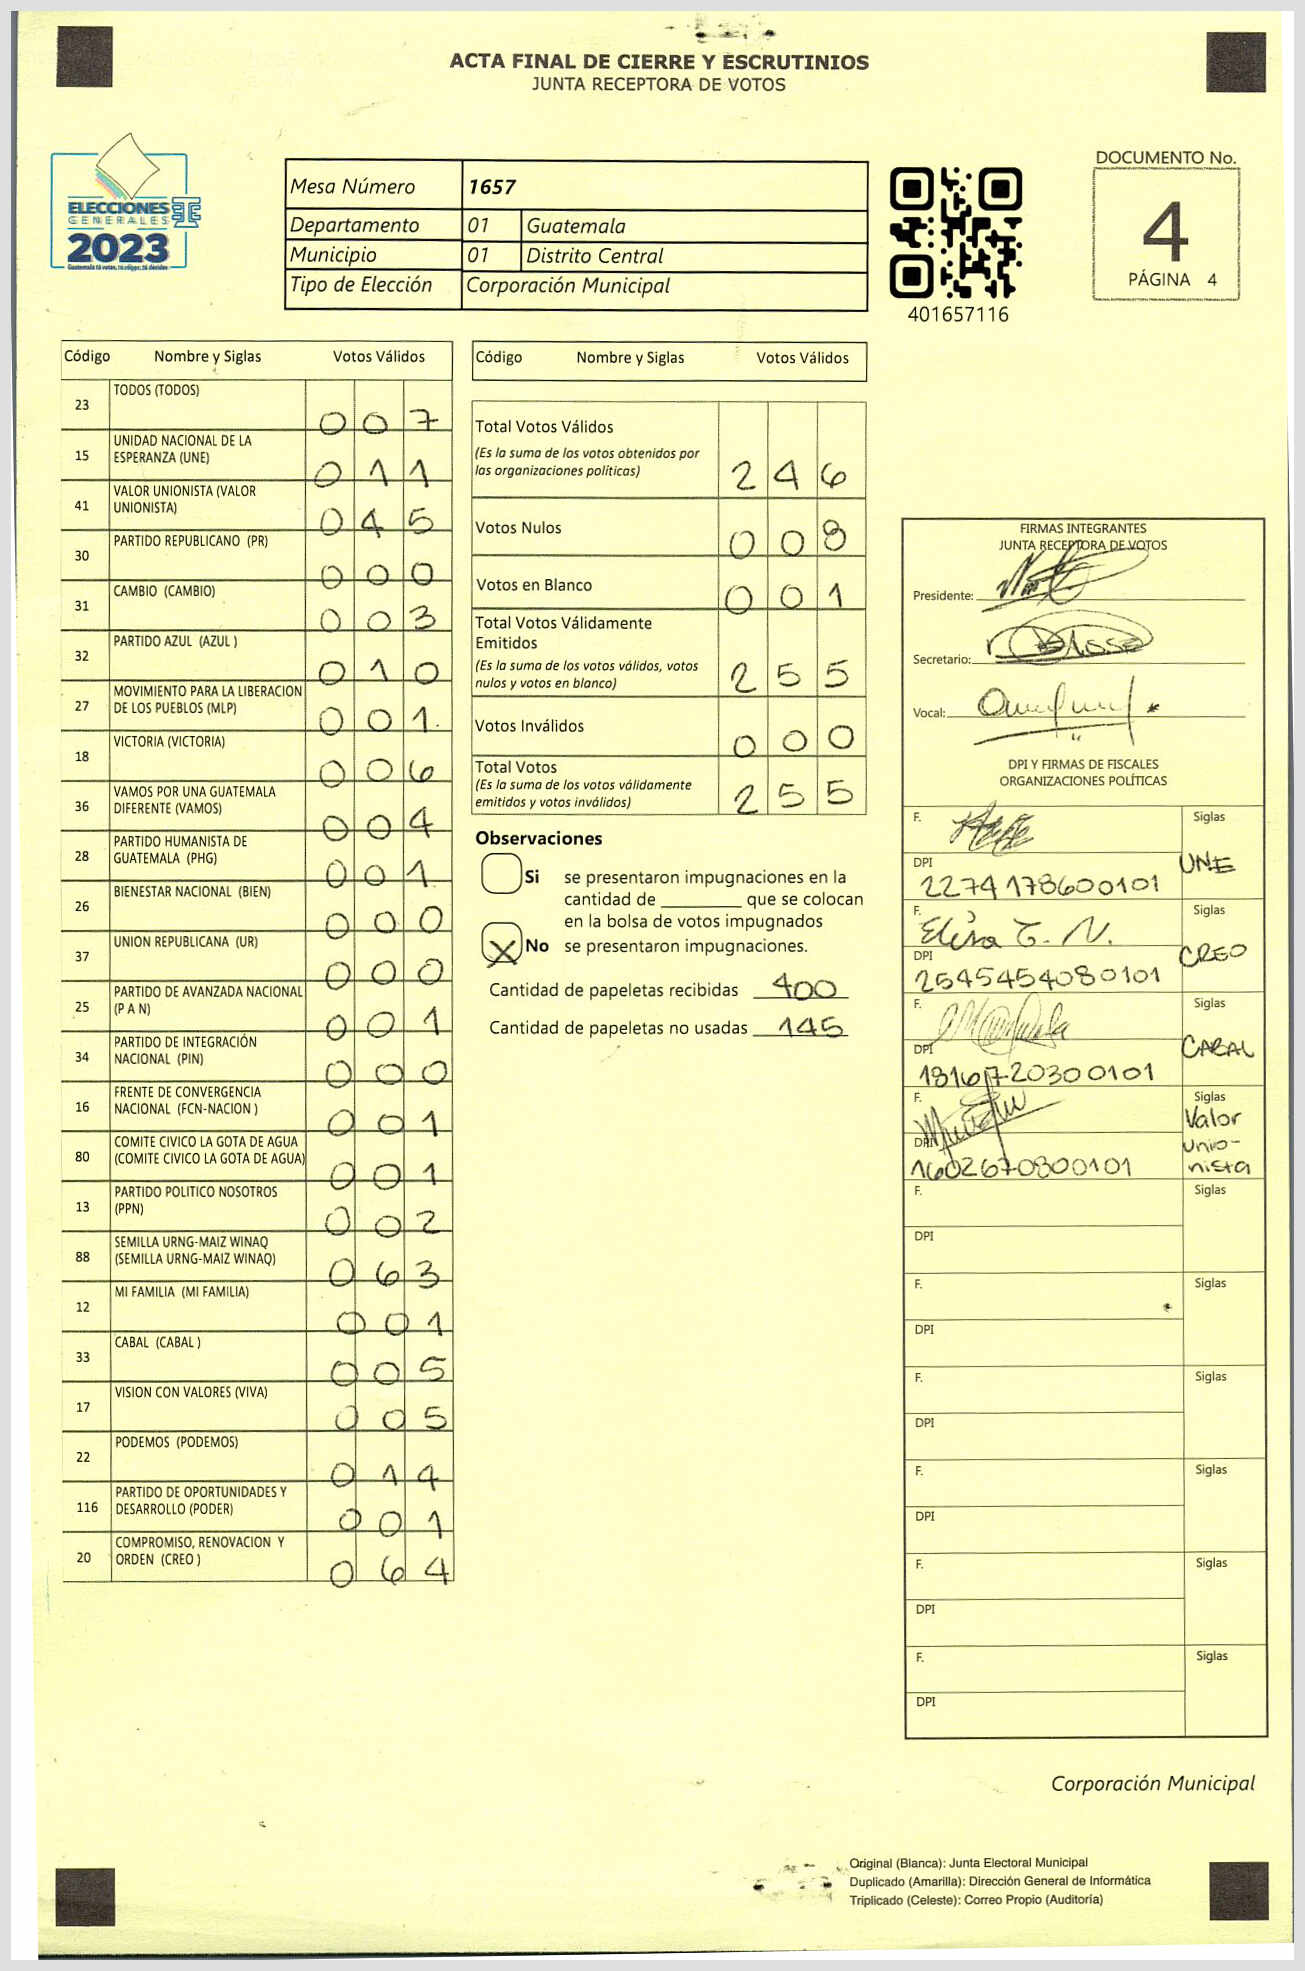 ACTA FINAL DE CIERRE Y ESCRUTINIOS
JUNTA RECEPTORA DE VOTOS
ELECCIONES
GENERALES
2023
Mesa Número 1657
Departamento 01 Guatemala
Municipio 01 Distrito Central
Tipo de Elección Corporación Municipal
401657116
DOCUMENTO No.
4
PÁGINA 4
Código Nombre y Siglas Votos Válidos
23 TODOS (TODOS) 007
15 UNIDAD NACIONAL DE LA
ESPERANZA (UNE) 011
41 VALOR UNIONISTA (VALOR
UNIONISTA) 045
30 PARTIDO REPUBLICANO (PR) 000
31 CAMBIO (CAMBIO) 003
32 PARTIDO AZUL (AZUL ) 010
27 MOVIMIENTO PARA LA LIBERACION
DE LOS PUEBLOS (MLP) 001
18 VICTORIA (VICTORIA) 006
36 VAMOS POR UNA GUATEMALA
DIFERENTE (VAMOS) 004
28 PARTIDO HUMANISTA DE
GUATEMALA (PHG) 001
26 BIENESTAR NACIONAL (BIEN) 000
37 UNION REPUBLICANA (UR) 000
25 PARTIDO DE AVANZADA NACIONAL
(P A N) 001
34 PARTIDO DE INTEGRACIÓN
NACIONAL (PIN) 000
16 FRENTE DE CONVERGENCIA
NACIONAL (FCN-NACION ) 001
80 COMITE CIVICO LA GOTA DE AGUA
(COMITE CIVICO LA GOTA DE AGUA) 001
13 PARTIDO POLITICO NOSOTROS
(PPN) 002
88 SEMILLA URNG-MAIZ WINAQ
(SEMILLA URNG-MAIZ WINAQ) 063
12 MI FAMILIA (MI FAMILIA) 001
33 CABAL (CABAL ) 005
17 VISION CON VALORES (VIVA) 005
22 PODEMOS (PODEMOS) 014
116 PARTIDO DE OPORTUNIDADES Y
DESARROLLO (PODER) 001
20 COMPROMISO, RENOVACION Y
ORDEN (CREO ) 064
Código Nombre y Siglas Votos Válidos
Total Votos Válidos
(Es la suma de los votos obtenidos por
las organizaciones políticas) 246
Votos Nulos 008
Votos en Blanco 001
Total Votos Válidamente
Emitidos
(Es la suma de los votos válidos, votos
nulos y votos en blanco) 255
Votos Inválidos 000
Total Votos
(Es la suma de los votos válidamente
emitidos y votos inválidos) 255
Observaciones
Si se presentaron impugnaciones en la
cantidad de ________ que se colocan
en la bolsa de votos impugnados
X No se presentaron impugnaciones.
Cantidad de papeletas recibidas 400
Cantidad de papeletas no usadas 145
FIRMAS INTEGRANTES
JUNTA RECEPTORA DE VOTOS
Presidente:
Secretario:
Vocal:
DPI Y FIRMAS DE FISCALES
ORGANIZACIONES POLÍTICAS
F. Siglas
UNE
DPI
2274178600101
F. Elisa C. N. Siglas
CREO
DPI
2545454080101
F. Siglas
CABAL
DPI
F. Siglas
Valor
Unio-
nista
DPI
1602670800101
F. Siglas
DPI
F. Siglas
DPI
F. Siglas
DPI
F. Siglas
DPI
F. Siglas
DPI
F. Siglas
DPI
Corporación Municipal
Original (Blanca): Junta Electoral Municipal
Duplicado (Amarilla): Dirección General de Informática
Triplicado (Celeste): Correo Propio (Auditoría)